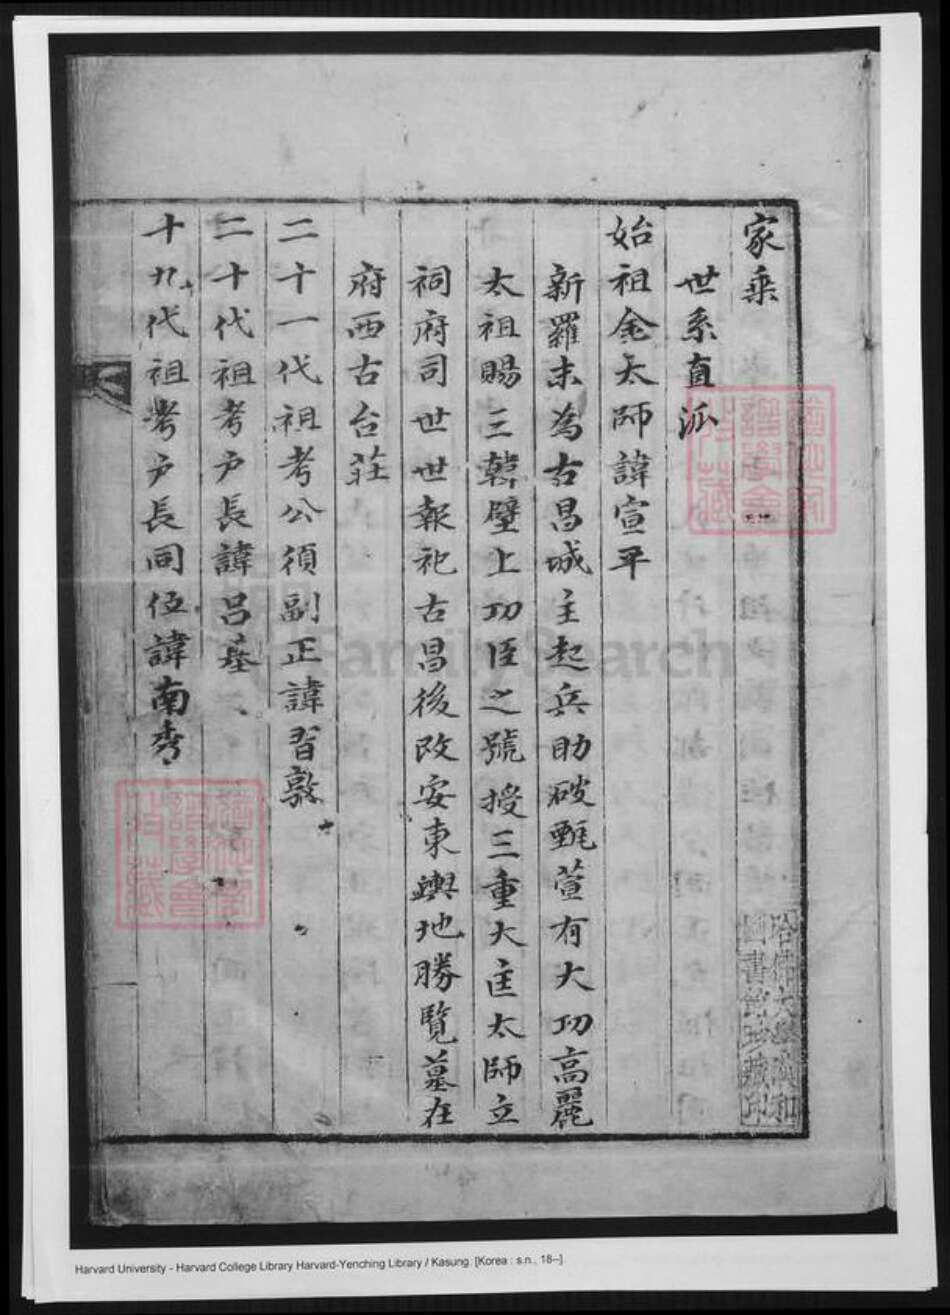 家乘
世系直派
始祖金太師諱宣平
新羅末為古昌城主起兵助破甄萱有大功高麗
太祖賜三韓壁上功臣之號授三重大匡太師立
祠府司世世報祀古昌後改安東輿地勝覽墓在
府西古台莊
二十一代祖考公須副正諱習敦
二十代祖考户長諱呂基
十九代祖考户長同位諱南秀
哈佛大學漢和
圖書館珍藏印
FamilySearch
Harvard University - Harvard College Library Harvard-Yenching Library / Kasung. [Korea : s.n., 18--].